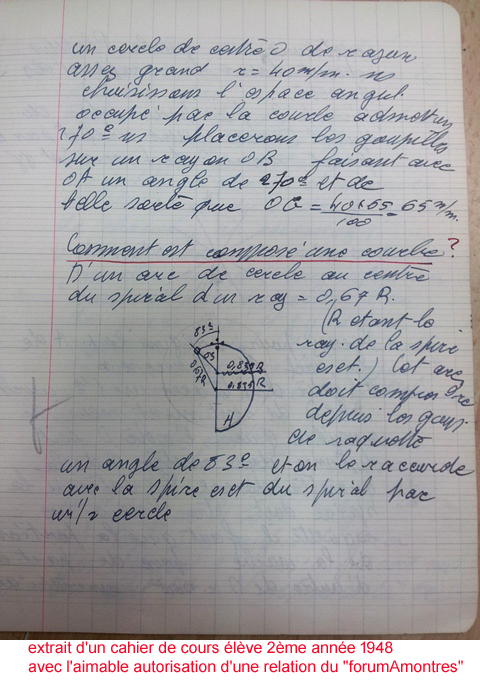 un cercle de centre O de rayon
assez grand r = 40 m/m. ns
choisissons l'espace angul.
occupé par la courbe admettons
270° ns placerons les goupilles
sur un rayon OB faisant avec
OA un angle de 270° et de
telle sorte que OG = 40 x 65 / 100 = 65 m/m.
Comment est composé une courbe ?
D'un arc de cercle au centre
du spiral d'un ray = 0,67 R.
(R etant le
ray. de la spire
ext.) Cet arc
doit comprendre
depuis les goup.
de raquette
83°
83
0,67R
0,835 R
0,835 R
A
un angle de 83° et on le raccorde
avec la spire ext du spiral par
un 1/2 cercle
extrait d'un cahier de cours élève 2ème année 1948
avec l'aimable autorisation d'une relation du "forumAmontres"